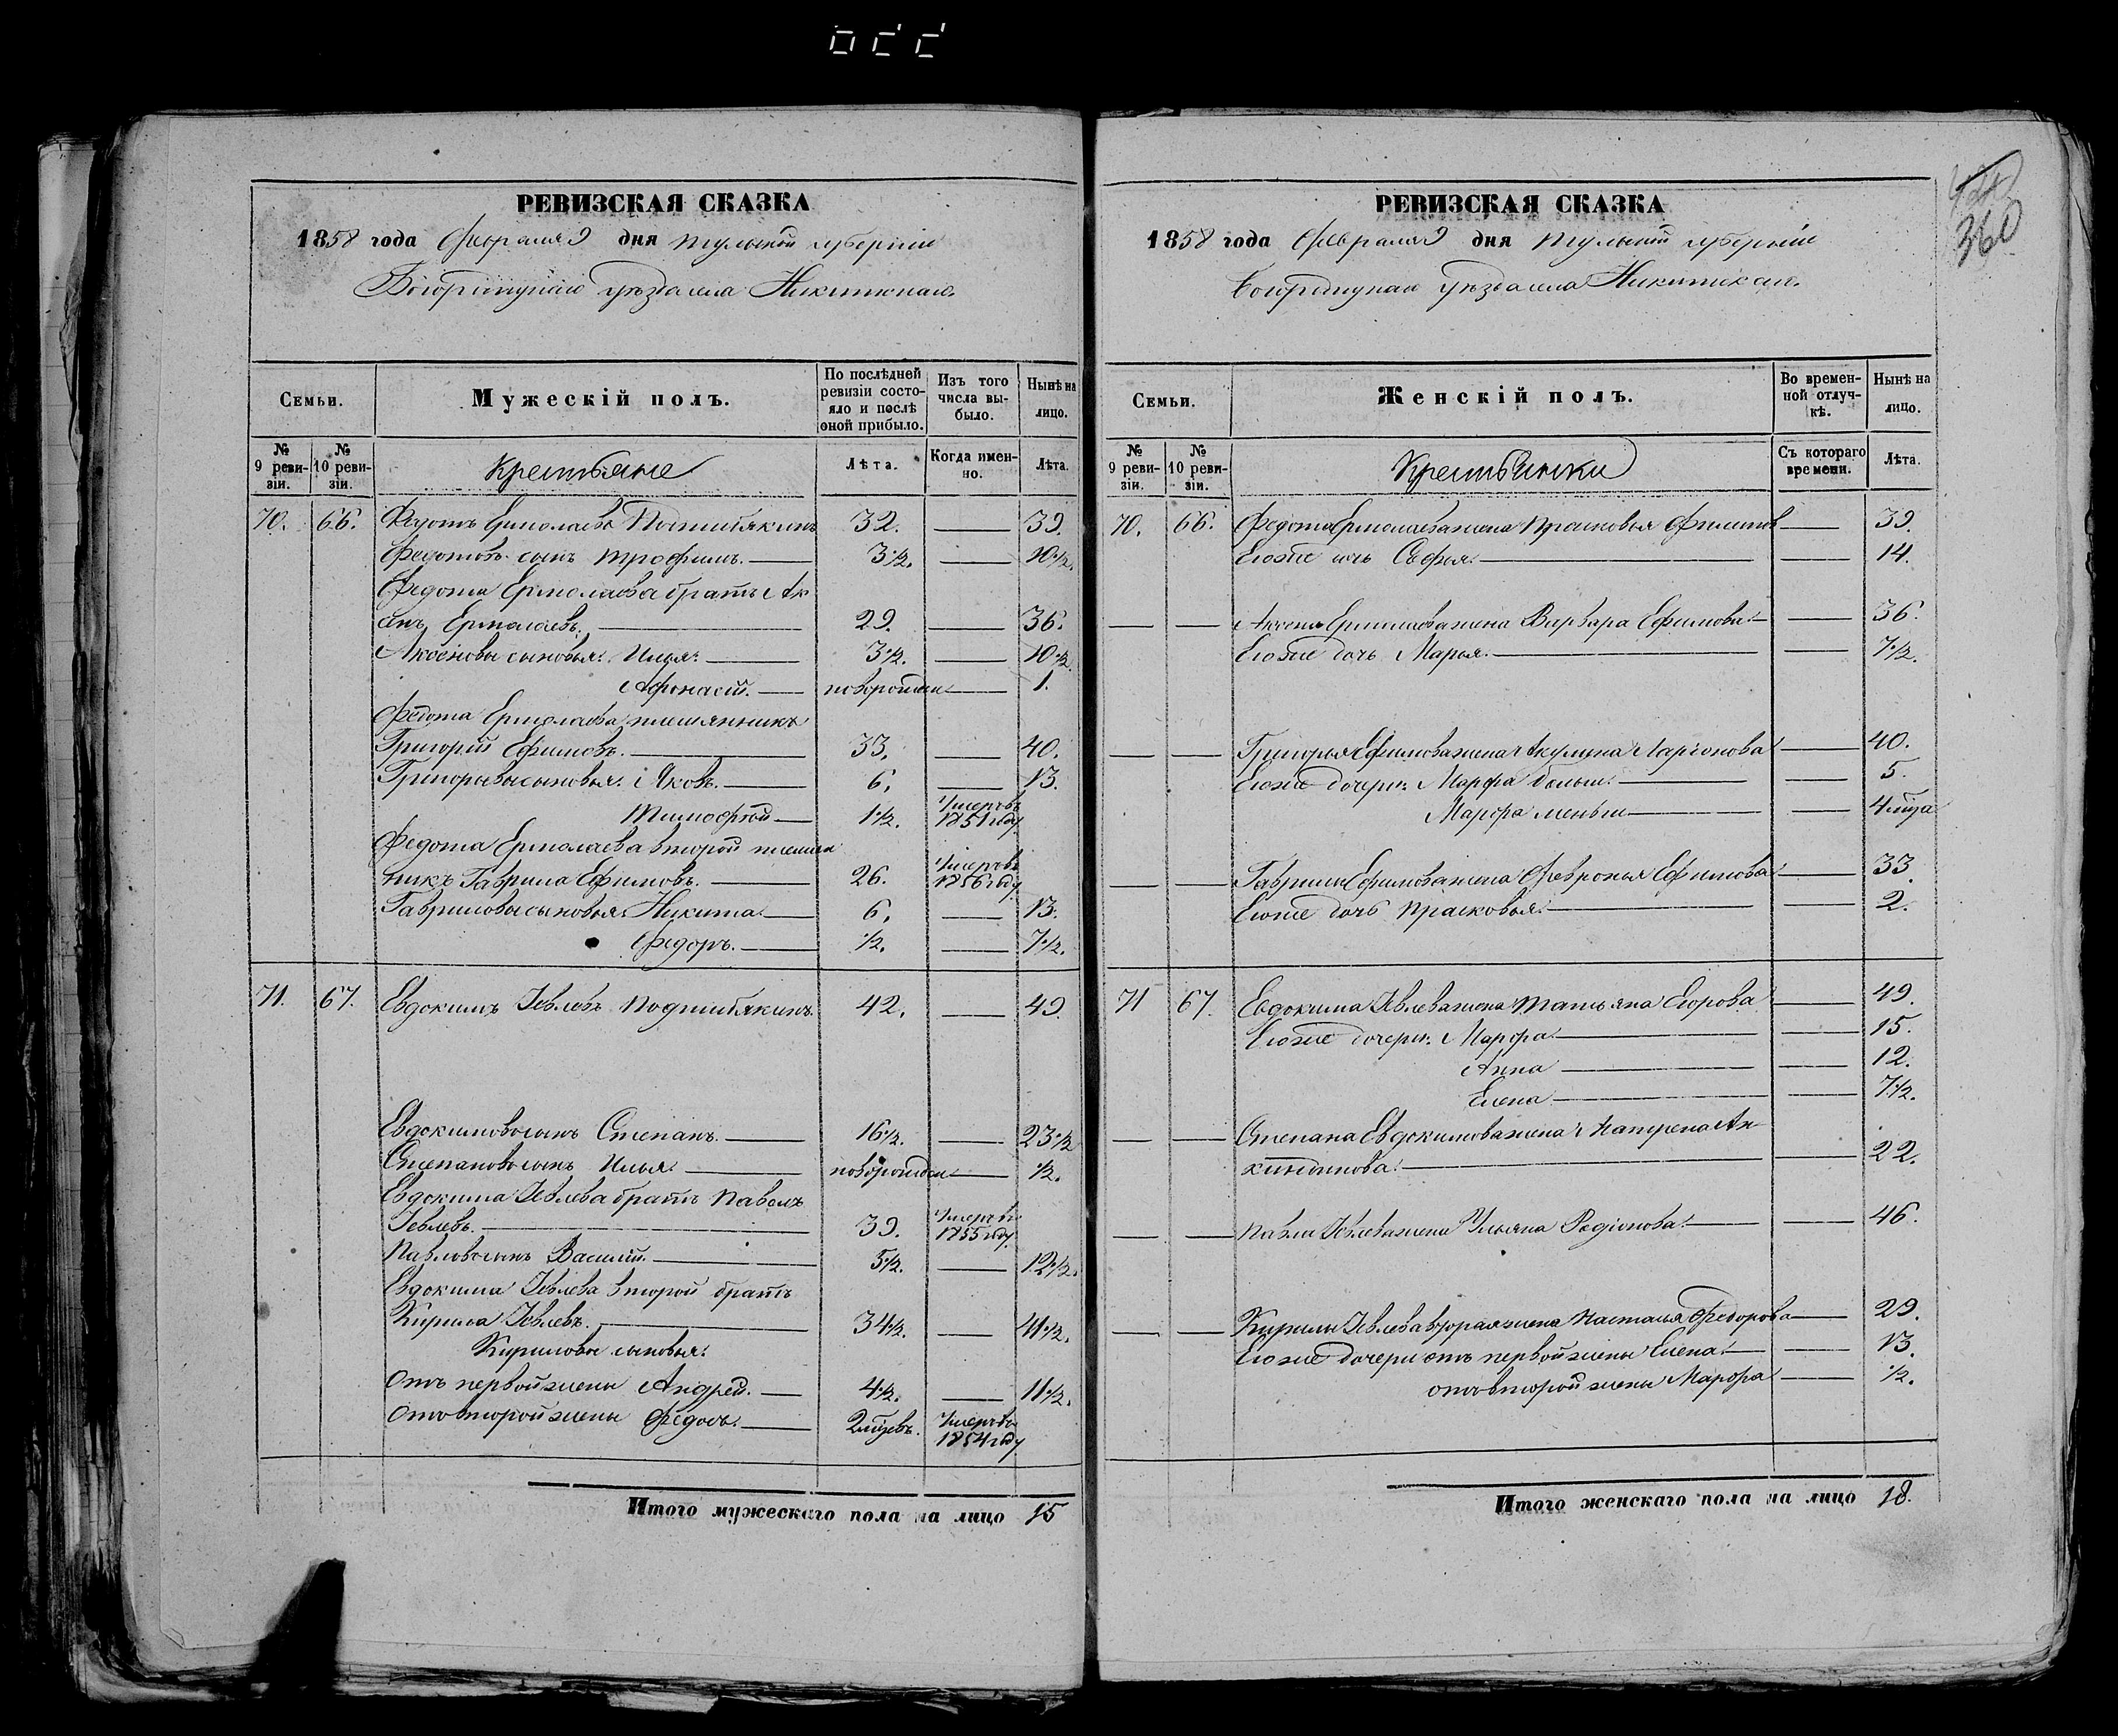 360
РЕВИЗСКАЯ СКАЗКА
1858 года Февраля 9 дня Тульской губернии
Богородицкаго уѣзда села Никитскаго.
Семьи.
Мужескій полъ.
По послѣдней ревизіи состояло и послѣ оной прибыло.
Изъ того числа выбыло.
Нынѣ на лицо.
№ 9 ревизіи.
№ 10 ревизіи.
Крестьяне
Лѣта.
Когда именно.
Лѣта.
70. 66. Федотъ Ермолаевъ Подшибякинъ 32. — 39.
Федотовъ сынъ Трофимъ. — 3½. — 10½.
Федота Ермолаева братъ Ак
сенъ Ермолаевъ. — 29. — 36.
Аксеновы сыновья: Илья. — 3½. — 10½.
Афонасій. — новорожден — 1.
Федота Ермолаева племянникъ
Григорій Ефимовъ. — 33. — 40.
Григорьевы сыновья: Яковъ. — 6. — 13.
Тимофей — 1½. Умеръ въ 1851 году
Федота Ермолаева второй племян
никъ Гаврила Ефимовъ. — 26. Умеръ въ 1856 году
Гавриловы сыновья: Никита — 6. — 13.
Федоръ. — ½. — 7½.
71. 67. Евдокимъ Іевлевъ Подшибякинъ. 42. — 49.
Евдокимовъ сынъ Степанъ. — 16½. — 23½
Степановъ сынъ Илья. — новорожден — ½.
Евдокима Іевлева братъ Павелъ
Іевлевъ. — 39. Умеръ въ 1855 году
Павловъ сынъ Василій. — 5½. — 12½.
Евдокима Іевлева второй братъ
Кирила Іевлевъ. — 34½. — 41½.
Кириловы сыновья:
Отъ первой жены Андрей. — 4½. — 11½.
Отъ второй жены Федосъ. — 2 мѣсцевъ. Умеръ въ 1854 году
Итого мужескаго пола на лицо 15
РЕВИЗСКАЯ СКАЗКА
1858 года Февраля 9 дня Тульской губерніи
Богородицкаго уѣзда села Никитскаго.
Семьи.
Женскій полъ.
Во временной отлучкѣ.
Нынѣ на лицо.
№ 9 ревизіи.
№ 10 ревизіи.
Крестьянки
Съ котораго времени.
Лѣта.
70. 66. Федота Ермолаева жена Прасковья Филипов — 39.
Егоже дочь Софья. — 14.
— — Аксена Ермолаева жена Варвара Ефимова — 36.
Егоже дочь Марья. — 7½.
— — Григорья Ефимова жена Акулина Ларіонова — 40.
Егоже дочери: Марфа больш. — 5.
Марфа меньш — 4 мѣца
— — Гаврилы Ефимова жена Февронья Ефимова — 33.
Егоже дочь Прасковья. — 2.
71 67. Евдокима Іевлева жена Татьяна Егорова — 49.
Егоже дочери: Марфа — 15.
Анна — 12.
Елена — 7½.
— — Степана Евдокимова жена Матрена Ан
— 22.
— — Павла Іевлева жена Ульяна Родіонова — 46.
— — Кирилы Іевлева вторая жена Настасья Федорова — 29.
Егоже дочери отъ первой жены Елена. — 13.
отъ второй жены Марфа — ½.
Итого женскаго пола на лицо 18.